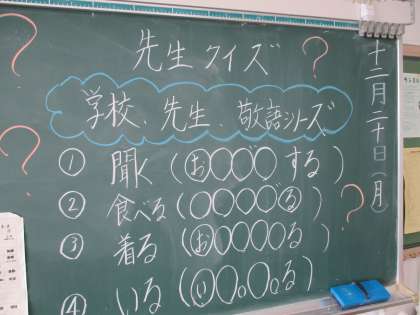 先生クイズ
学校、先生、敬語シリーズ
① 聞く(お○○○する)
② 食べる(○○○○る)
③ 着る(お○○○る)
④ いる(い○。○。る)
十二月二十日(月)